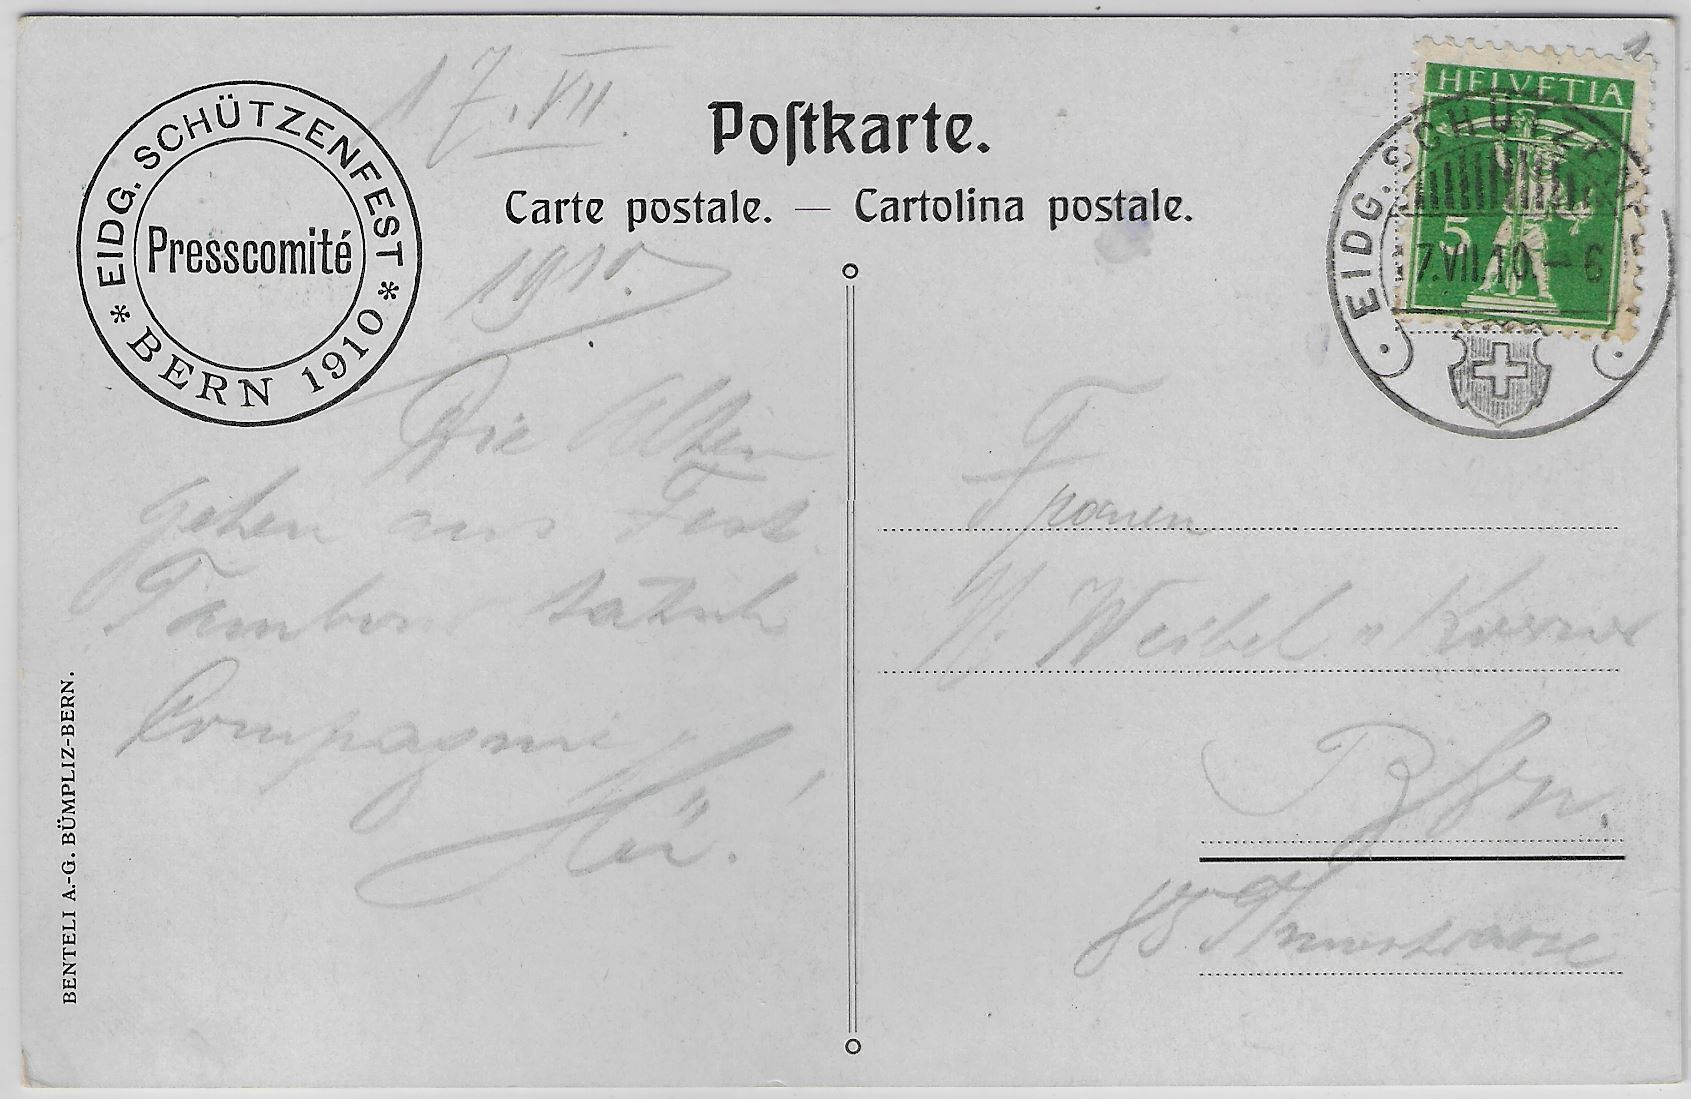 EIDG. SCHÜTZENFEST
Presscomité
* BERN 1910 *
17. VII.
1910.
Postkarte.
Carte postale. — Cartolina postale.
HELVETIA
5
EIDG. SCHÜTZ
7.VII.10.–6
Die Alten
gehen aus Fest.
Tambour
Compagnie
Frauen
Weibel
Bern.
BENTELI A.-G. BÜMPLIZ-BERN.